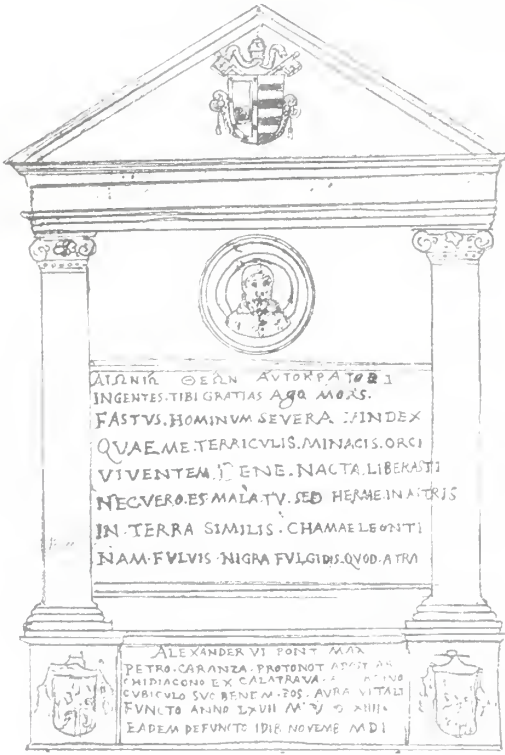 ΑΙΩΝΙΩ ΘΕΩΝ ΑΥΤΟΚΡΑΤΟΡΙ
INGENTES·TIBI GRATIAS AgO MORS·
FASTVS·HOMINVM SEVERA VINDEX
QVAE ME·TERRICVLIS·MINACIS·ORCI
VIVENTEM BENE·NACTA·LIBERASTI
NEC VERO·ES MALA·TV·SED HERME·IN ATRIS
IN·TERRA SIMILIS·CHAMAELEONTI
NAM·FVLVIS·NIGRA FVLGIDIS·QVOD·ATRA
ALEXANDER VI PONT MAX
PETRO·CARANZA·PROTONOT APOST AR
CHIDIACONO EX CALATRAVA
CVBICVLO SVO BENE M·POS·AVRA VITALI
FVNCTO ANNO LXVII
EADEM DEFVNCTO IDIB NOVEMB MDI